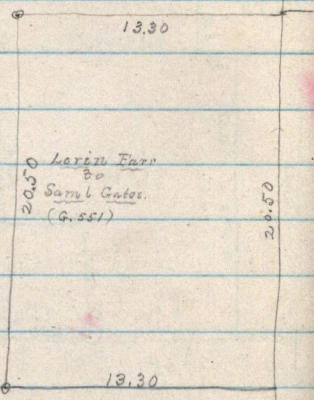 13.30
20.50
Lorin Farr
to
Saml Gates.
(G. 551)
20.50
13.30